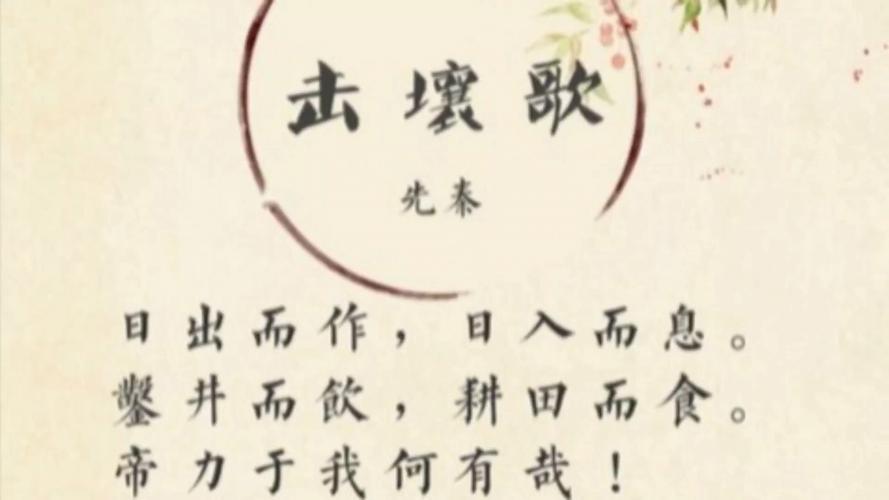 击壤歌
先秦
日出而作，日入而息。
鑿井而飲，耕田而食。
帝力于我何有哉！